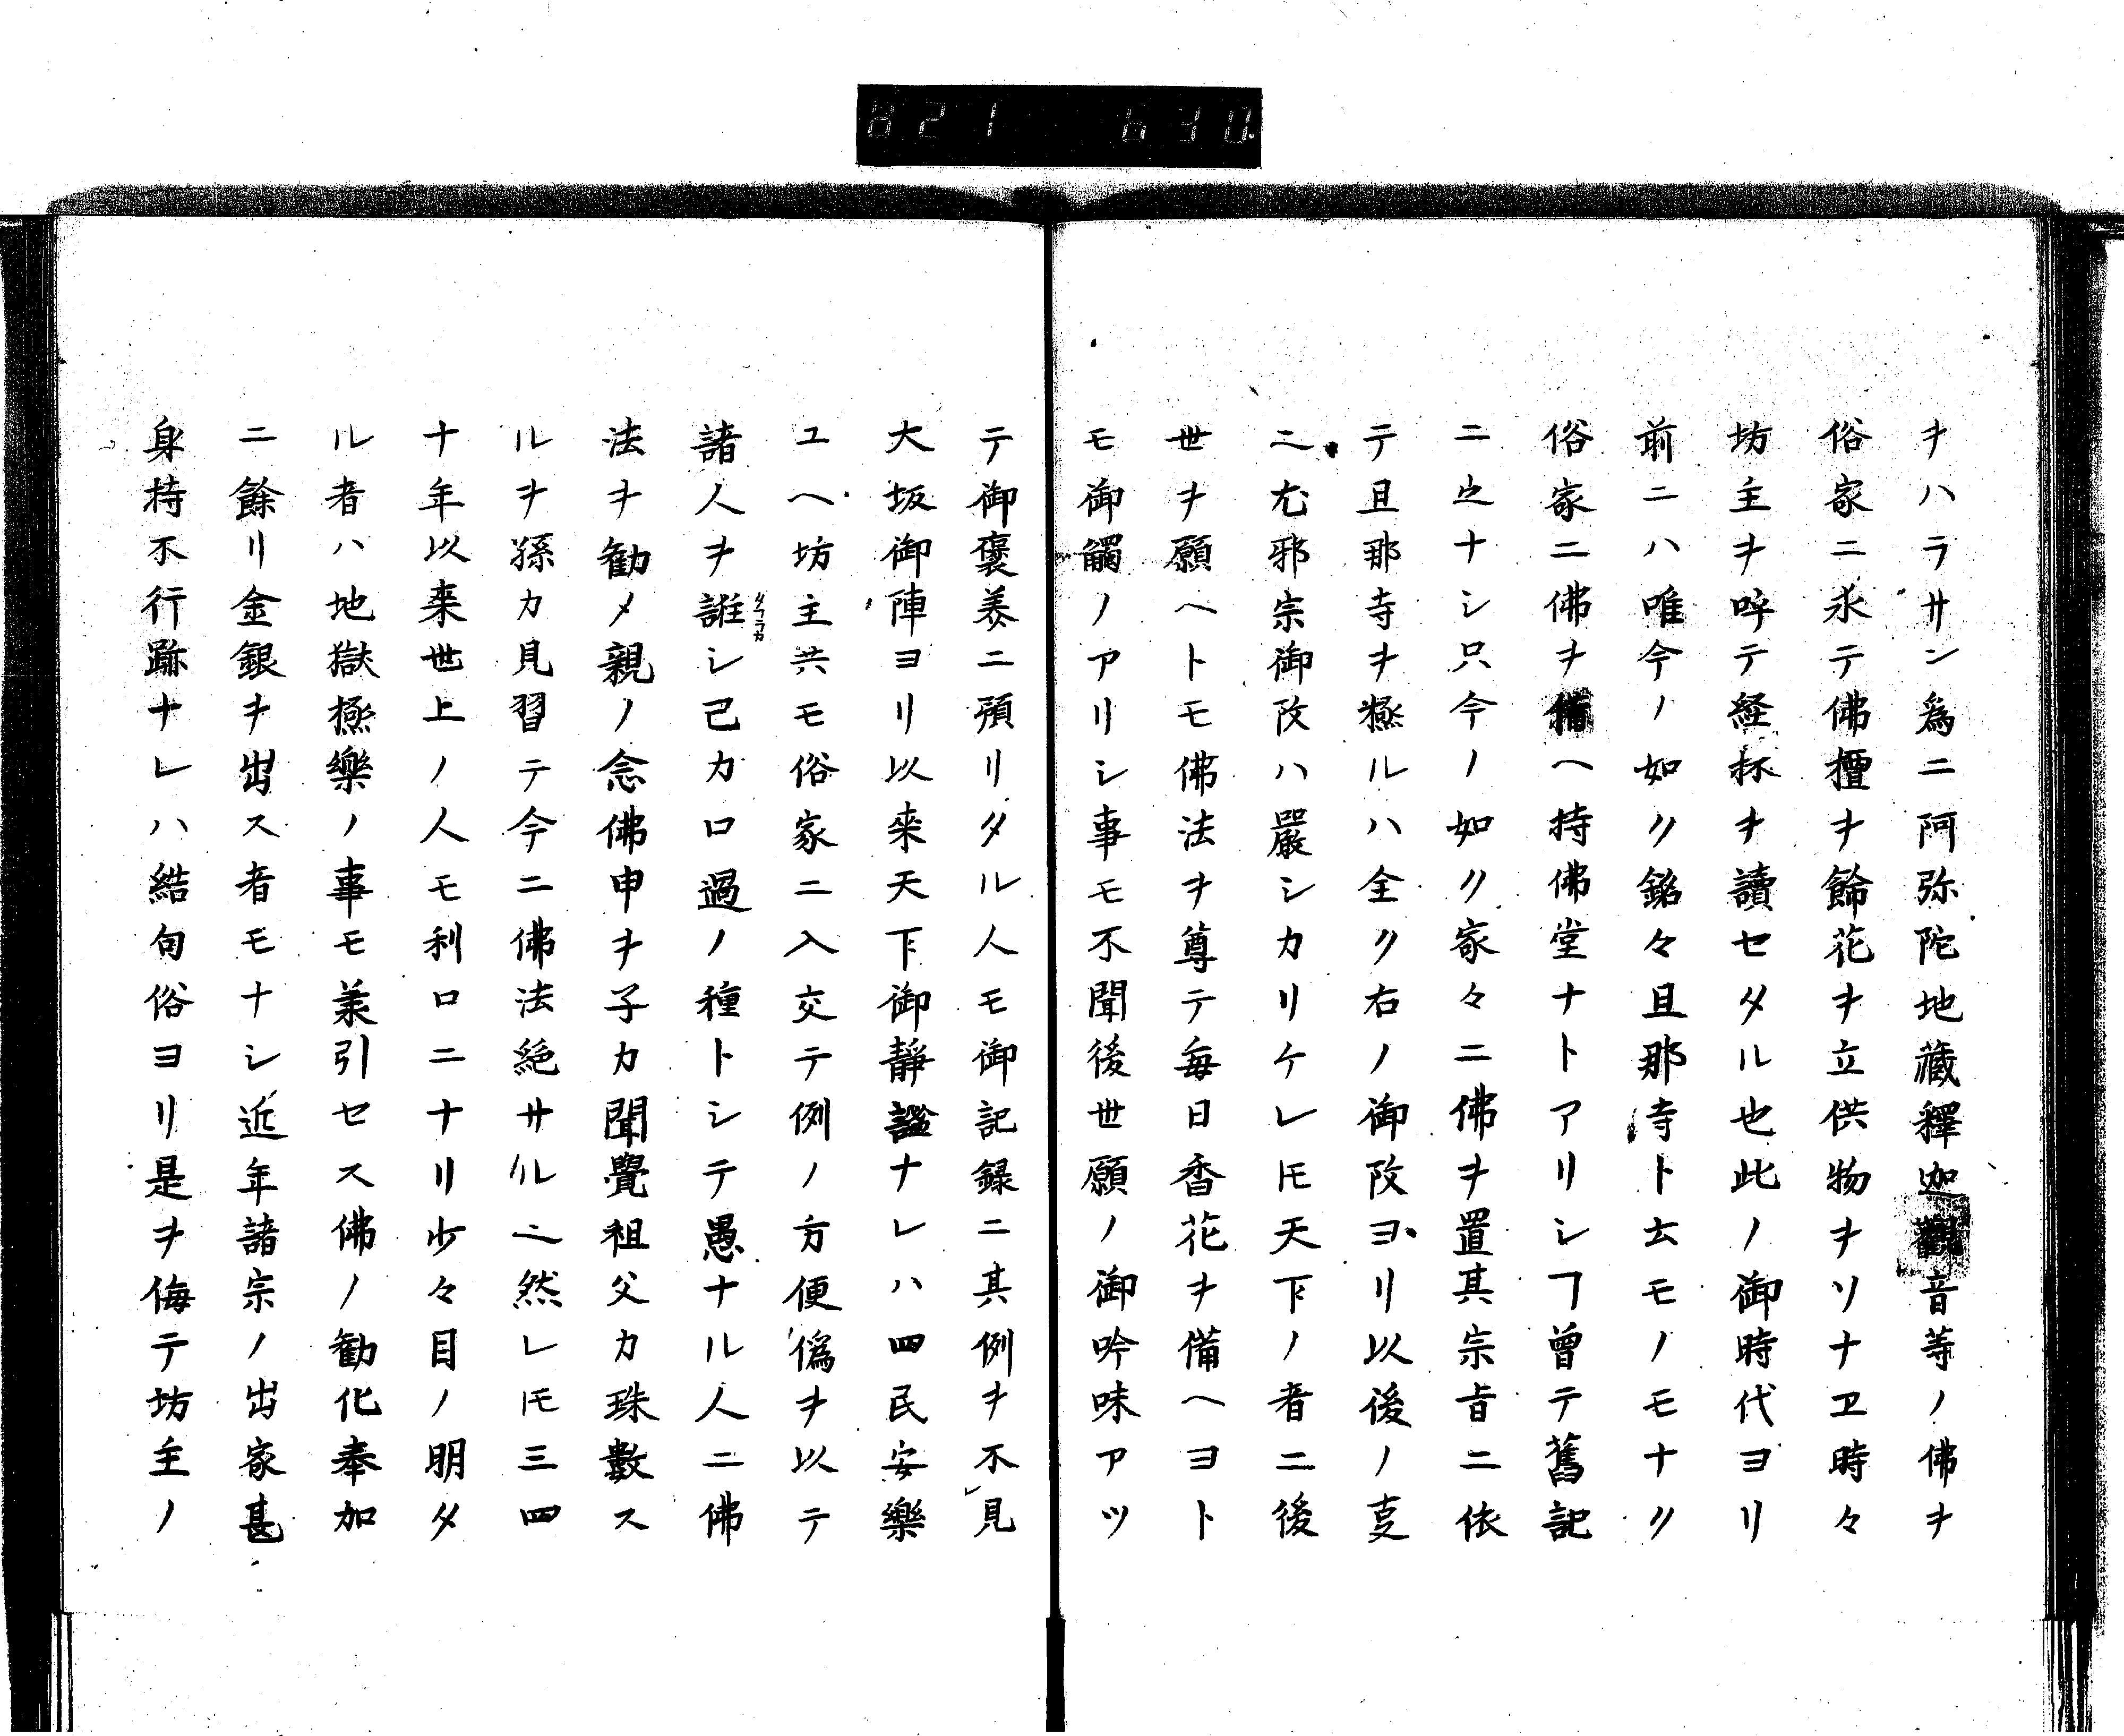 821 630
ヲハラサン為ニ阿弥陀地藏釋迦觀音等ノ佛ヲ
俗家ニ求テ佛檀ヲ餝花ヲ立供物ヲソナヱ時々
坊主ヲ呼テ経抔ヲ讀セタル也此ノ御時代ヨリ
前ニハ唯今ノ如ク銘々且那寺ト云モノモナク
俗家ニ佛ヲ備へ持佛堂ナトアリシヿ曾テ舊記
ニ之ナシ只今ノ如ク家々ニ佛ヲ置其宗旨ニ依
テ且那寺ヲ極ルハ全ク右ノ御改ヨリ以後ノ㕝
ニ尤邪宗御改ハ嚴シカリケレ𪜈天下ノ者ニ後
世ヲ願ヘトモ佛法ヲ尊テ毎日香花ヲ備ヘヨト
モ御觸ノアリシ事モ不聞後世願ノ御吟味アツ
テ御褒美ニ預リタル人モ御記録ニ其例ヲ不見
大坂御陣ヨリ以来天下御靜謐ナレハ四民安樂
ユヘ坊主共モ俗家ニ入交テ例ノ方便僞ヲ以テ
諸人ヲ誑シ己カ口過ノ種トシテ愚ナル人ニ佛
タフラカ
法ヲ勧メ親ノ念佛申ヲ子カ聞覺祖父カ珠數ス
ルヲ孫カ見習テ今ニ佛法絶サル二然レ𪜈三四
十年以来世上ノ人モ利口ニナリ少々目ノ明タ
ル者ハ地獄極樂ノ事モ美引セス佛ノ勧化奉加
ニ餘リ金銀ヲ出ス者モナシ近年諸宗ノ出家甚
身持不行跡ナレハ結句俗ヨリ是ヲ侮テ坊主ノ